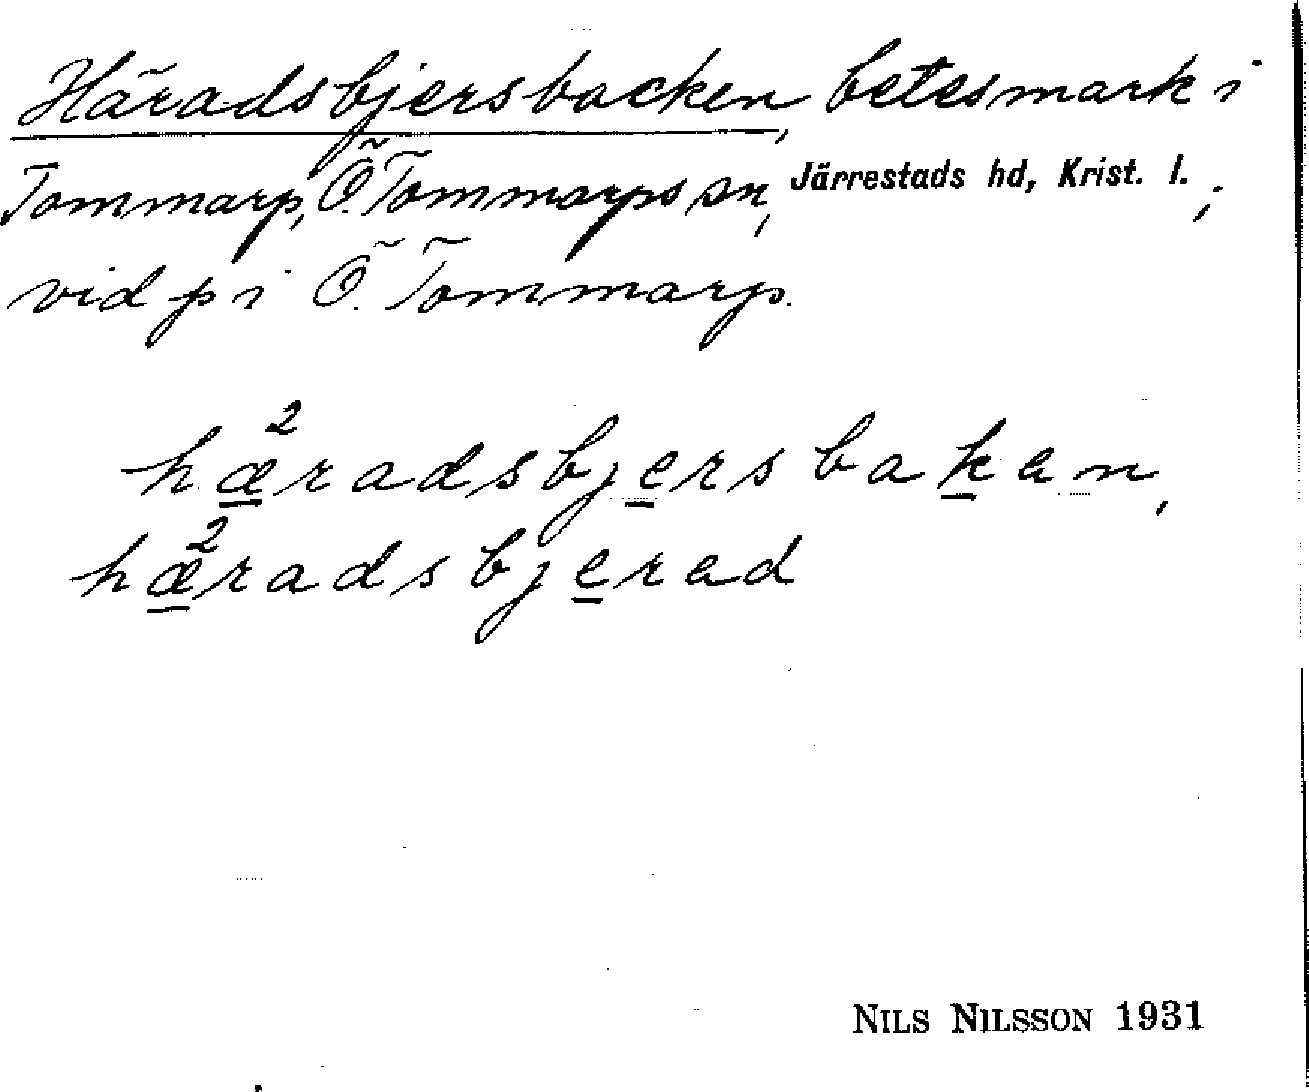 Häradsbjersbacken, betesmark i
Tommarp, Ö. Tommarps sn, Järrestads hd, Krist. l. ,
vid p i Ö. Tommarp.
hæ²radsbjersbakan,
hæ²radsbjerad
NILS NILSSON 1931